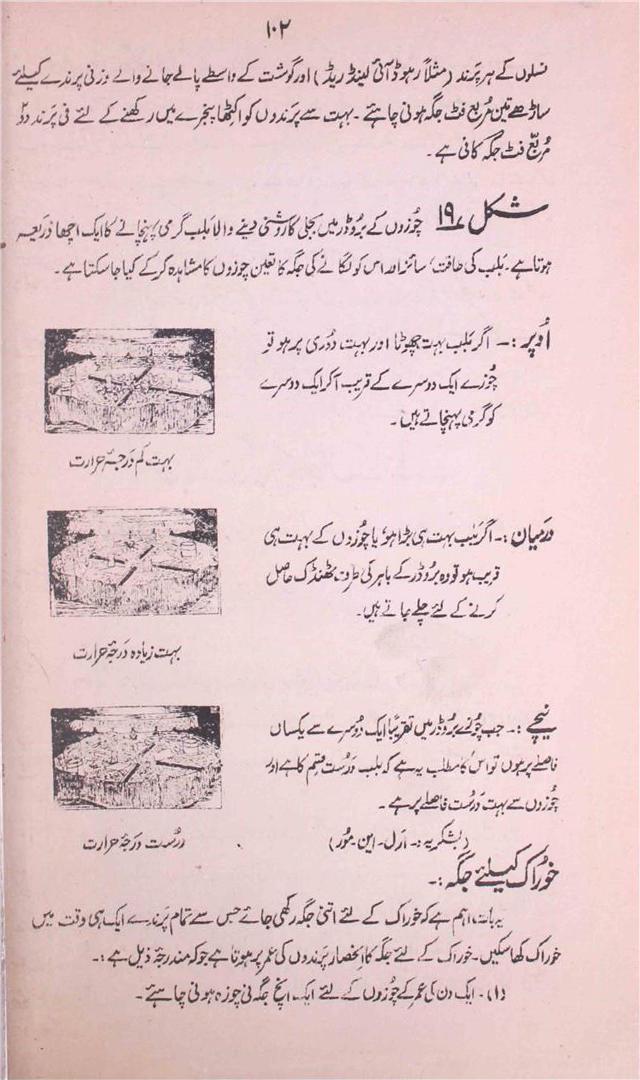 ۱۰۲
نسلوں کے ہر پرند (مثلاً رہوڈ آئی لینڈ ریڈ) اور گوشت کے واسطے پالے جانے والے وزنی پرندے کیلئے
ساڑھے تین مُربع فٹ جگہ ہونی چاہئے۔ بہت سے پرندوں کو اکٹھا پنجرے میں رکھنے کے لئے فی پرند دو
مُربّع فٹ جگہ کافی ہے۔
شکل ۱۹ چُوزوں کے بروڈر میں بجلی کا روشنی دینے والا بلب گرمی پہنچانے کا ایک اچھا ذریعہ
ہوتا ہے۔ بلب کی طاقت، سائز اور اس کو لگانے کی جگہ کا تعین چوزوں کا مشاہدہ کرکے کیا جا سکتا ہے۔
اُوپر :- اگر بلب بہت چھوٹا اور بہت دُوری پر ہو تو
چُوزے ایک دوسرے کے قریب آکر ایک دوسرے
کو گرمی پہنچاتے ہیں۔
بہت کم درجۂ حرارت
درمیان :- اگر بلب بہت ہی بڑا ہو، یا چُوزوں کے بہت ہی
قریب ہو تو وہ بروڈر کے باہر کی طرف ٹھنڈک حاصل
کرنے کے لئے چلے جاتے ہیں۔
بہت زیادہ درجۂ حرارت
نیچے :- جب چُوزے بروڈر میں تقریباً ایک دُوسرے سے یکساں
فاصلے پر ہوں تو اس کا مطلب یہ ہے کہ بلب درست قسم کا ہے اور
چُوزوں سے بہت درست فاصلے پر ہے۔
(بشکریہ :- ارل۔ این۔ مُور)
درُست درجۂ حرارت
خوراک کیلئے جگہ :-
یہ بات اہم ہے کہ خوراک کے لئے اتنی جگہ رکھی جائے جس سے تمام پرندے ایک ہی وقت میں
خوراک کھا سکیں۔ خوراک کے لئے جگہ کا انحصار پرندوں کی عمر پر ہوتا ہے جو کہ مندرجہ ذیل ہے :-
(۱)۔ ایک دن کی عمر کے چُوزوں کے لئے ایک انچ جگہ فی چوزہ ہونی چاہئے۔